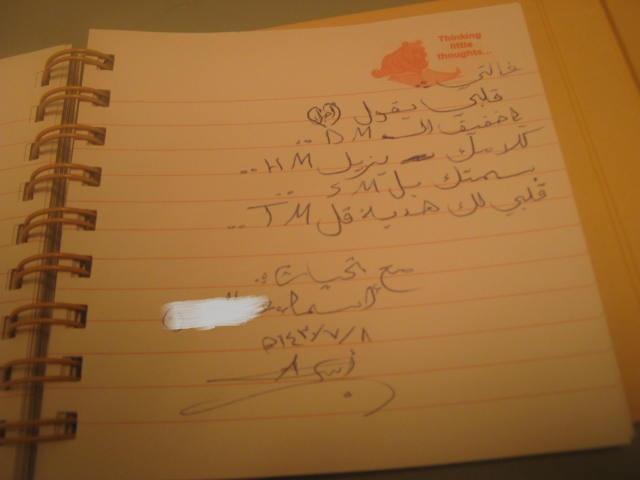 Thinking
little
thoughts...
خالتي ..
قلبي يقول
خفيف الـ DM ..
كلامك يزيل HM ..
بسمتك بل SM ..
قلبي لك هدية قل TM ..
مع تحيات :
١٤٣٠/٧/٨هـ